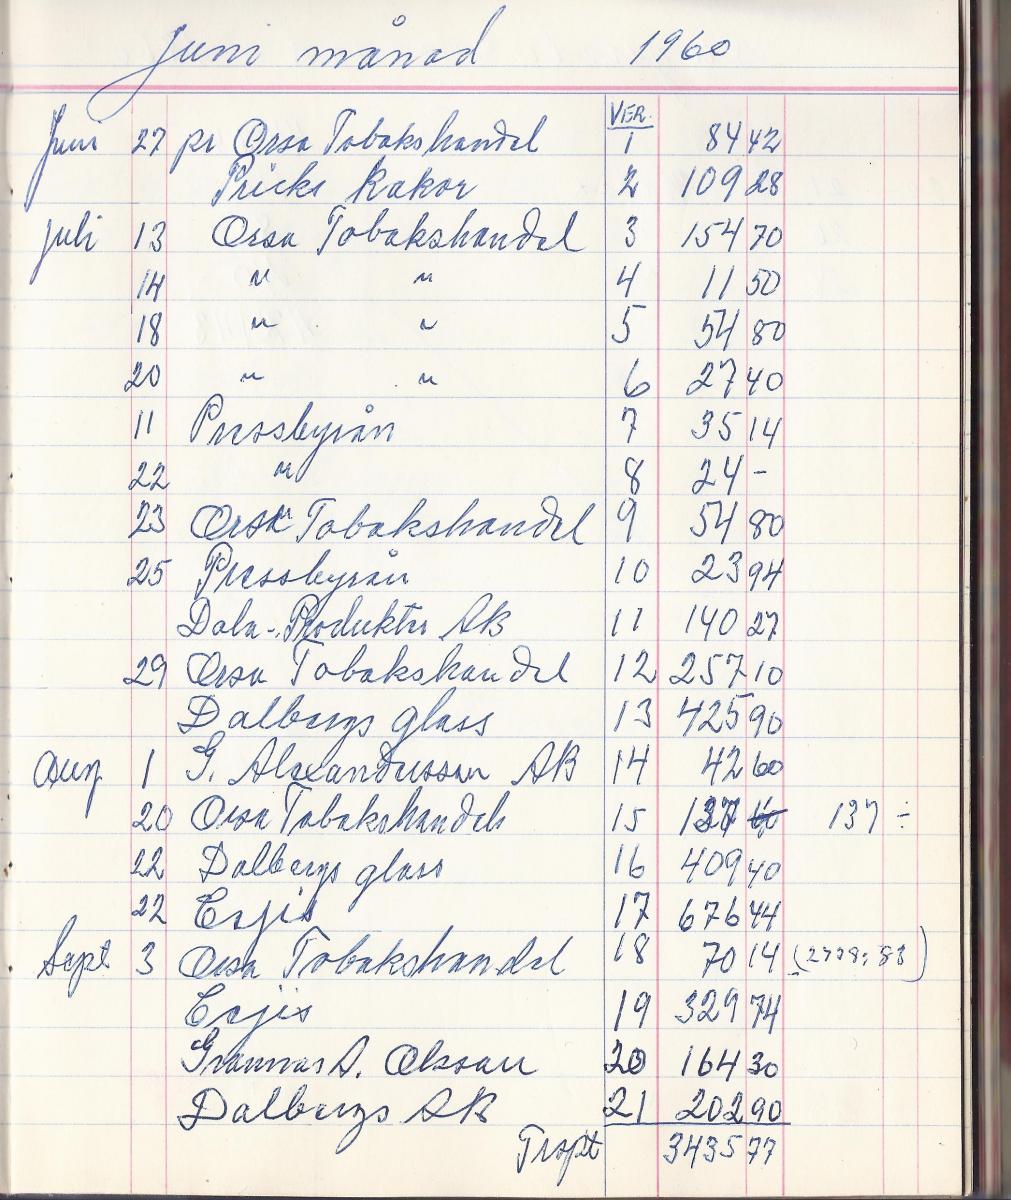 Juni månad 1960
VER.
Juni 27 pr Orsa Tobakshandel 1 84 42
Pricks Kakor 2 109 28
juli 13 Orsa Tobakshandel 3 154 70
14 " " 4 11 50
18 " " 5 54 80
20 " " 6 27 40
11 Pressbyrån 7 35 14
22 " 8 24 -
23 Orsa Tobakshandel 9 54 80
25 Pressbyrån 10 23 94
Dala-Produkter AB 11 140 27
29 Orsa Tobakshandel 12 257 10
Dalbergs glass 13 425 90
Aug 1 G. Alexandersson AB 14 42 60
20 Orsa Tobakshandels 15 137 ÷
22 Dalbergs glass 16 409 40
22 Eejis 17 676 44
Sept 3 Orsa Tobakshandel 18 70 14
Eejis 19 329 74
A. Olsson 20 164 30
Dalbergs AB 21 202 90
Trspt 3435 77